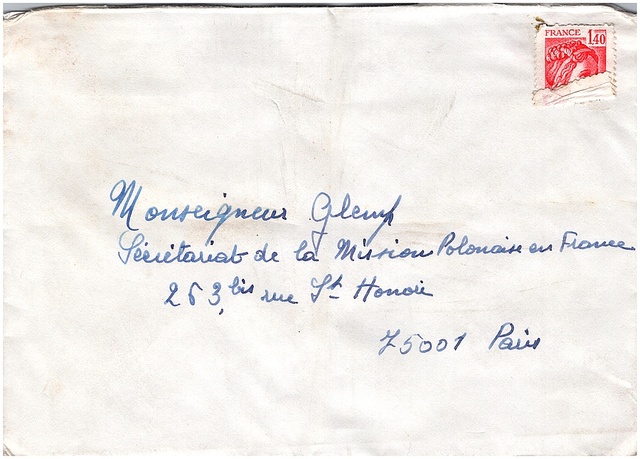 FRANCE 1,40
Monseigneur Glemp
Sécrétariat de la Mission Polonaise en France
263, bis rue St Honoré
75001 Paris